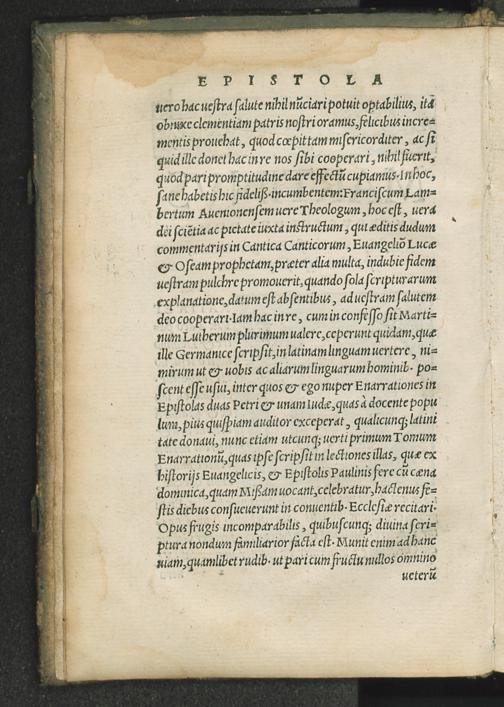 EPISTOLA
uero hac uestra salute nihil nũciari potuit optabilius, itã
obnixe clementiam patris nostri oramus, felicibus incre=
mentis prouehat, quod cœpit tam misericorditer, ac si
quid ille donet hac in re nos sibi cooperari, nihil fuerit,
quod pari promptitudine dare effectũ cupiamus. In hoc,
sane habetis hic fideliß. incumbentem: Franciscum Lam=
bertum Auenionensem uere Theologum, hoc est, uera
dei sciẽtia ac pietate iuxta instructum, qui æditis dudum
commentarijs in Cantica Canticorum, Euangeliõ Lucæ
& Oseam prophetam, præter alia multa, indubie fidem
uestram pulchre promouerit, quando sola scripturarum
explanatione, datum est absentibus, ad uestram salutem
deo cooperari. Iam hac in re, cum in confesso sit Marti=
num Lutherum plurimum ualere, ceperunt quidam, quæ
ille Germanice scripsit, in latinam linguam uertere, ni=
mirum ut & uobis ac aliarum linguarum hominib. po=
scent esse usui, inter quos & ego nuper Enarrationes in
Epistolas duas Petri & unam Iudæ, quas à docente popu
lum, pius quispiam auditor exceperat, qualicunq; latini
tate donaui, nunc etiam utcunq; uerti primum Tomum
Enarrationũ, quas ipse scripsit in lectiones illas, quæ ex
historijs Euangelicis, & Epistolis Paulinis fere cũ cæna
dominica, quam Mißam uocant, celebratur, hactenus fe=
stis diebus consueuerunt in conuentib. Ecclesiæ recitari.
Opus frugis incomparabilis, quibuscunq; diuina scri=
ptura nondum familiarior facta est. Munit enim ad hanc
uiam, quamlibet rudib. ut pari cum fructu nullos omnino
ueterũ